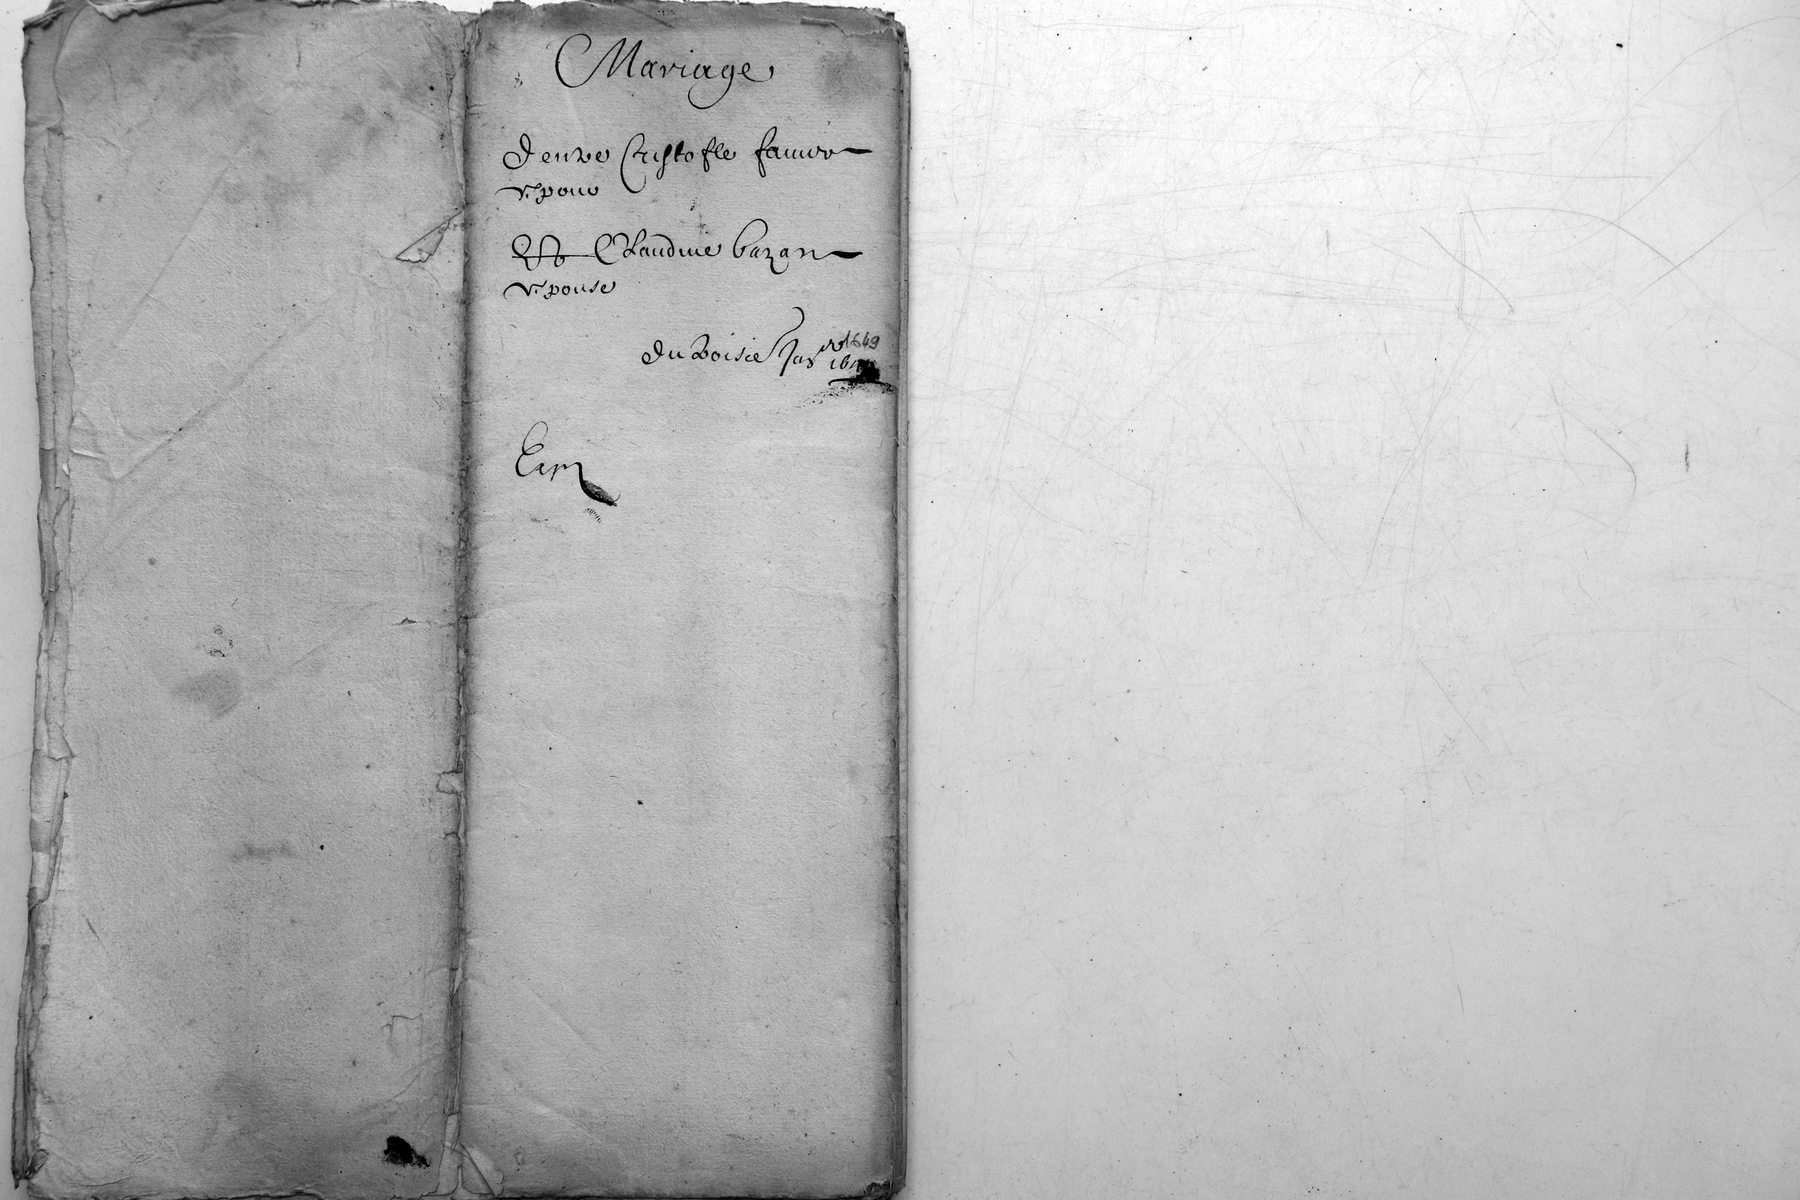 Mariage
d'entre Cristofle fauvre
espoux
Et Claudine bazan
espouse
du Janr 1649
164